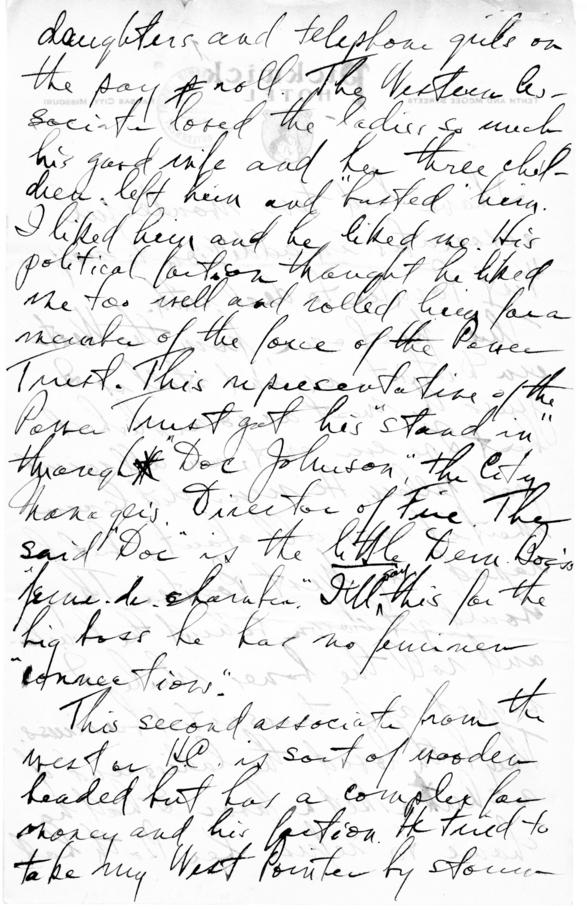 daughters and telephone girls on
the pay roll. The Western As-
sociate loved the ladies so much
his good wife and her three chil-
dren left him and "busted" him.
I liked him and he liked me. His
political faction thought he liked
me too well and rolled him for a
member of the force of the Power
Trust. This representative of the
Power Trust got his "stand in"
through "Doc Johnson", the City
Manager's Director of Fire. The
said "Doc" is the little Dem. Boss's
"feme-de-chamber." I'll say this for the
big boss he has no feminine
"connections".
This second associate from the
west or H.C. is sort of wooden
headed but has a complex for
money and his faction. He tried to
take my West Pointer by storm
Pickwick
HOTEL
TENTH AND MCGEE STREETS
KANSAS CITY, MISSOURI